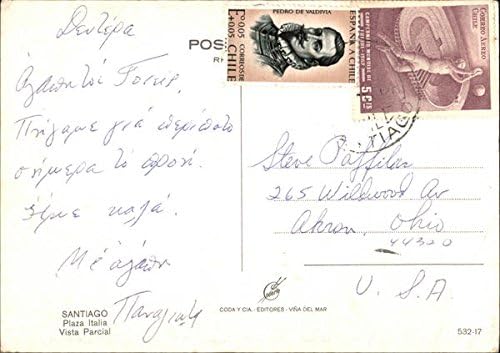 Δευτέρα
Αγαπητοί Γονείς,
Πήγαμε γιά περίπατο
σήμερα τό πρωί.
Είμαι καλά.
Μέ αγάπη
POS
PEDRO DE VALDIVIA
Eº 0.05 CORREOS DE
+0.05 CHILE
ESPAÑA A CHILE
CORREO AEREO
CHILE
5 Cts
SANTIAGO
Steve Paffilas
265 Wildwood Av
Akron, Ohio
44320
U. S. A.
SANTIAGO
Plaza Italia
Vista Parcial
CODA Y CIA. - EDITORES - VIÑA DEL MAR
532-17